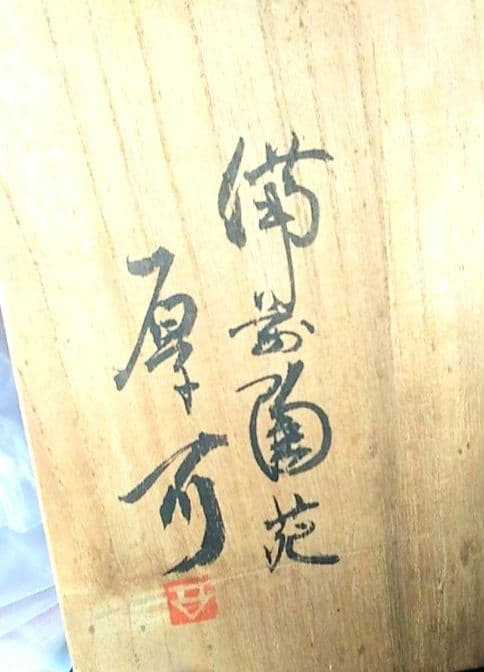 備前陶苑
厚可